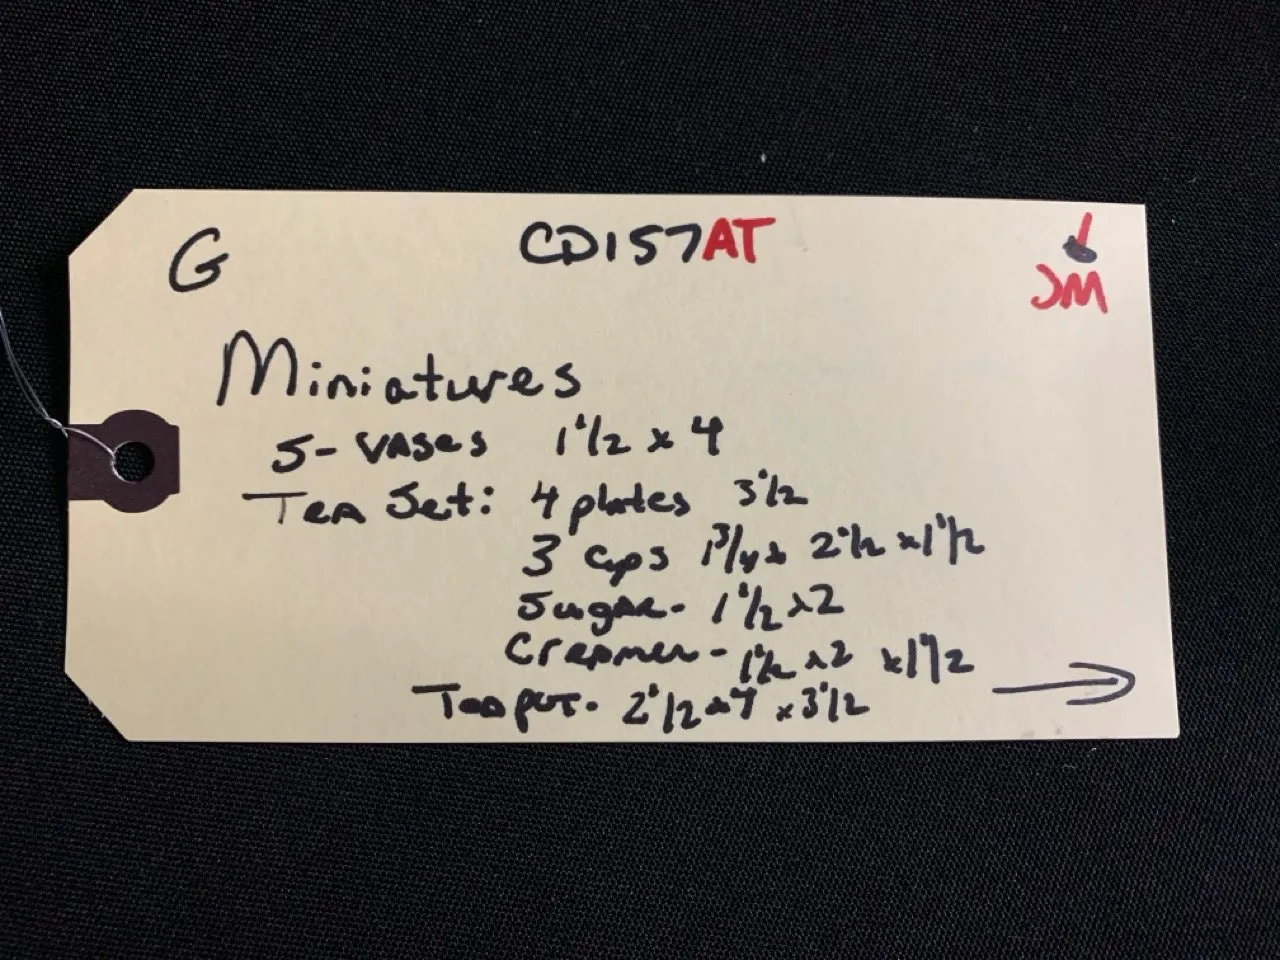 G CD157AT JM
Miniatures
5- VASes 1 1/2 x 4
Tea Set: 4 plates 3 1/2
3 cups 1 3/4 x 2 1/2 x 1 1/2
Sugar- 1 1/2 x 2
Creamer- 1 1/2 x 2 x 1 1/2
Teapot- 2 1/2 x 4 x 3 1/2 →